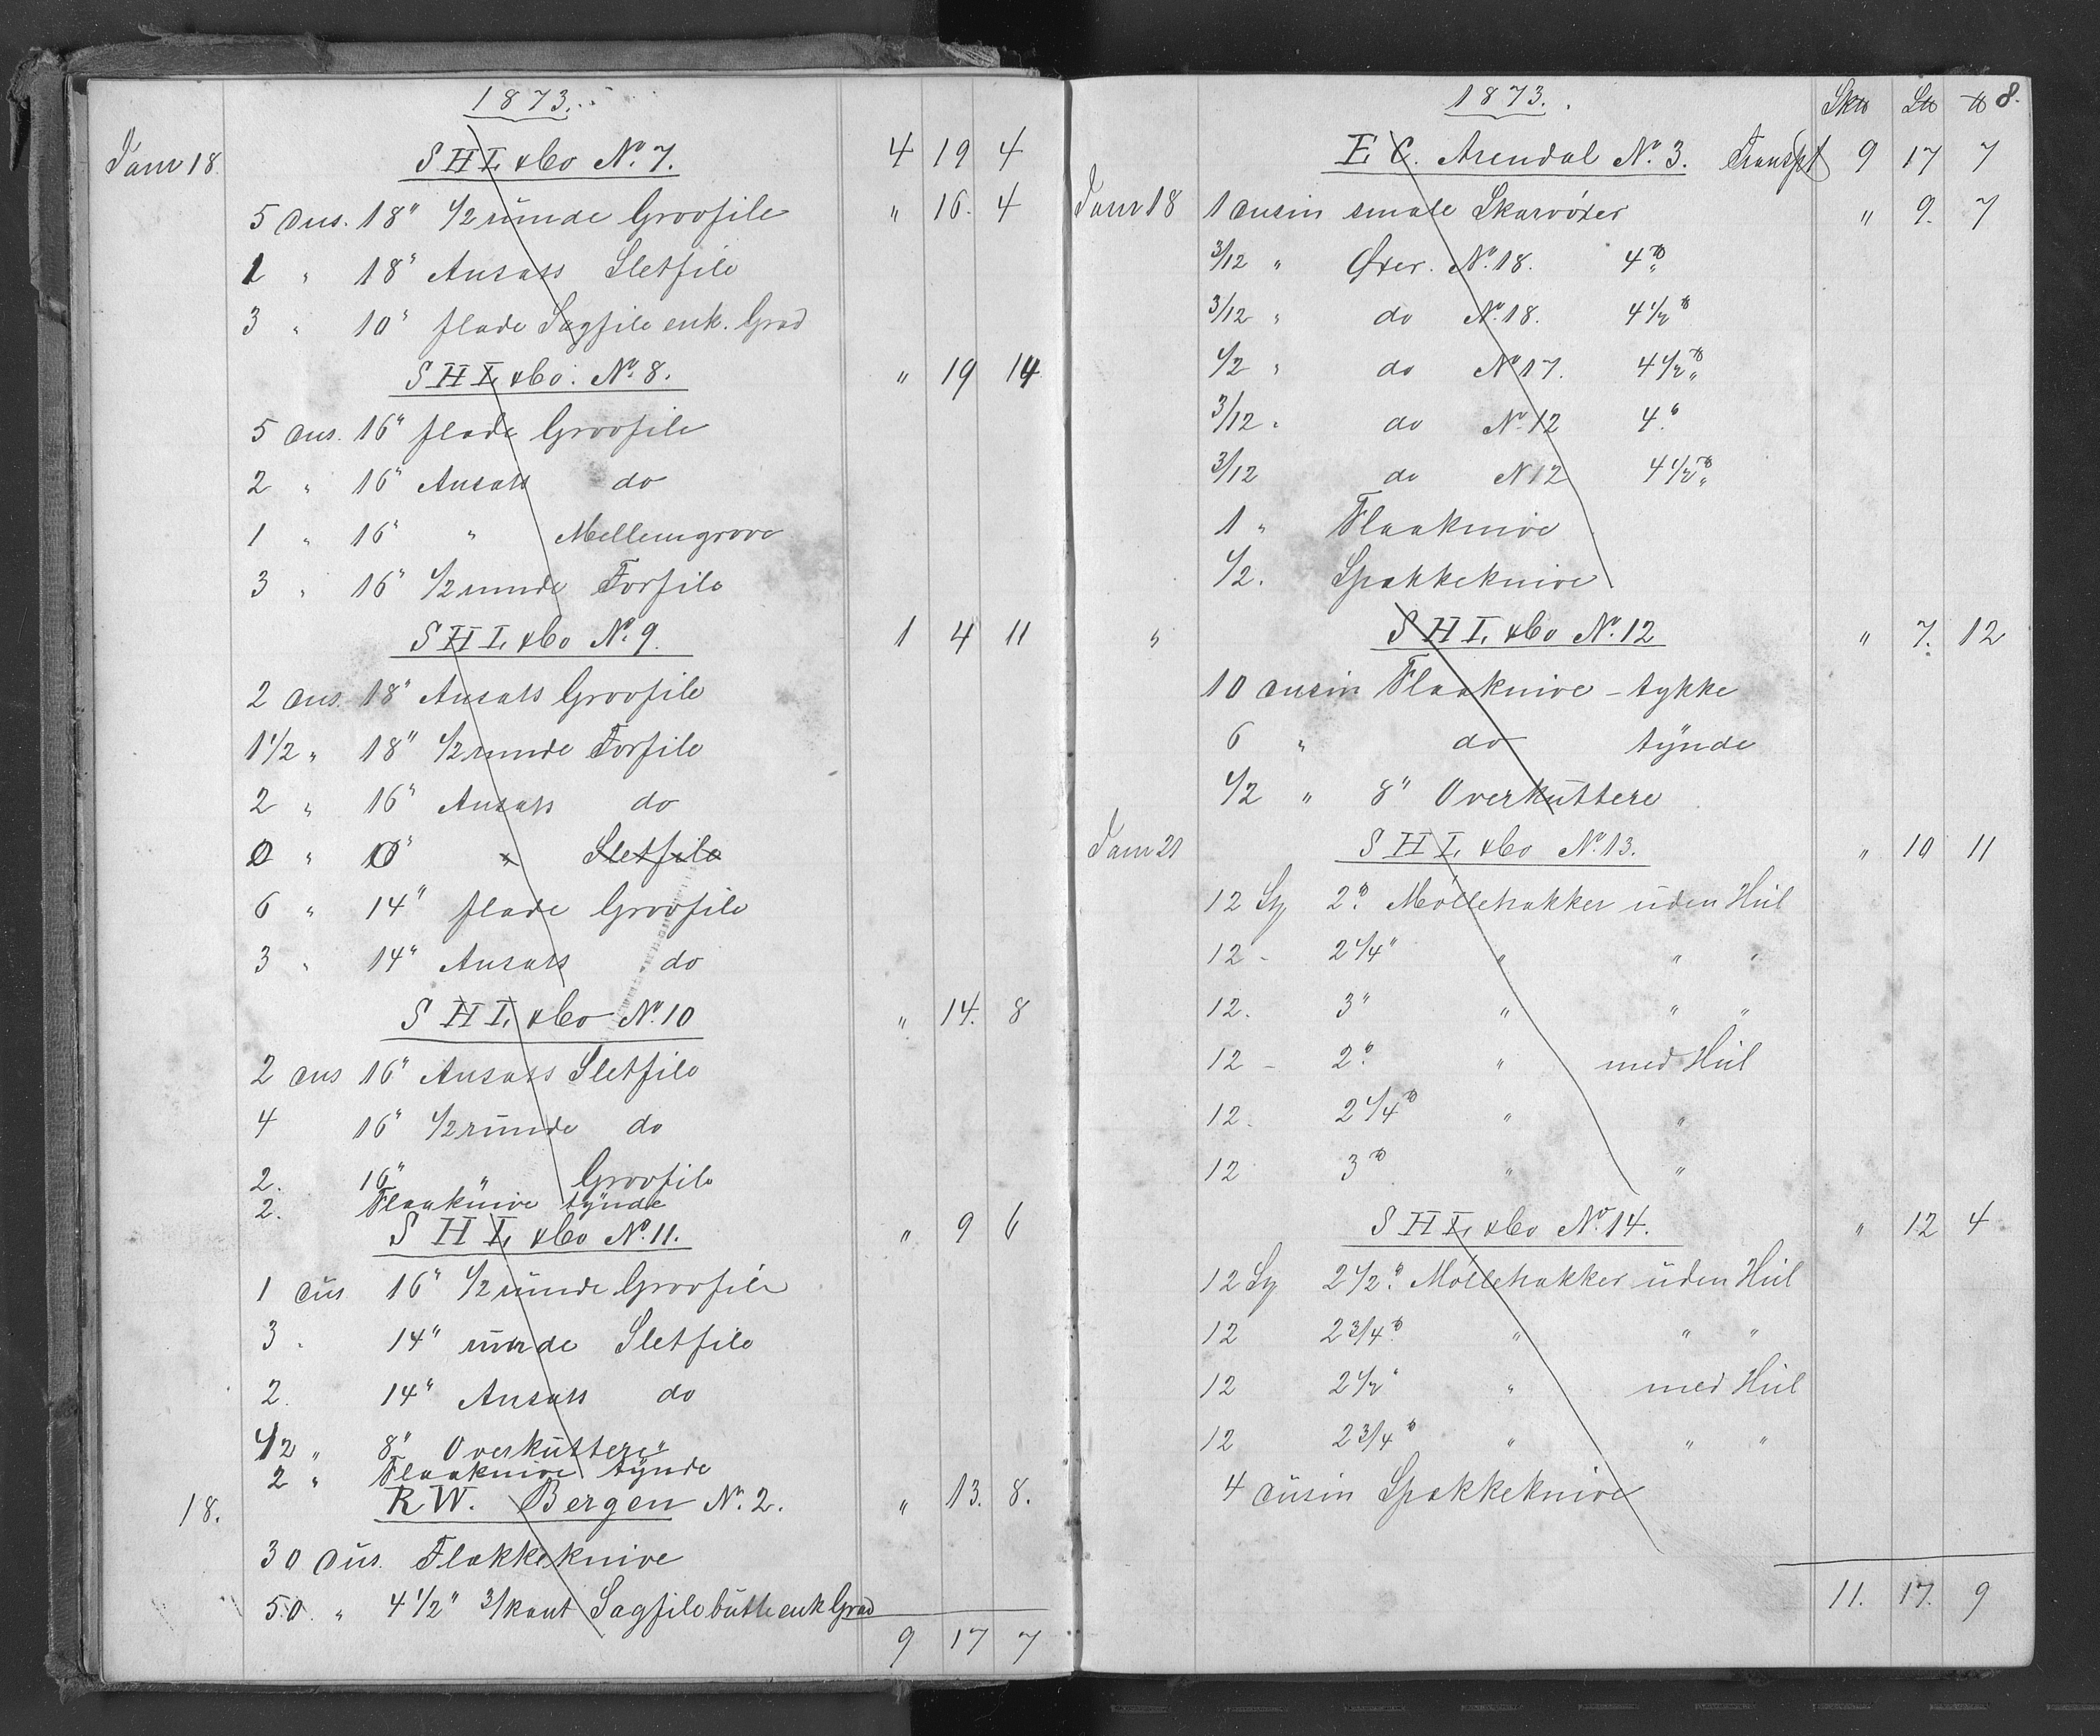 1873.
4 19 4
Janr 18 S H L & Co No. 7.
5 dus. 18" 1/2 runde Grovfile " 16. 4
1 " 18" Ansats Sletfile
3 " 10" flade Sagfile enk. Grad
S H L & Co. No. 8. " 19 14
5 dus. 16" flade Grovfile
2 " 16" Ansats do
1 " 16" " Mellemgrove
3 " 16" 1/2 runde Forfile
S H L & Co No. 9. 1 4 11
2 dus. 18" Ansats Grovfile
1 1/2 " 18" 1/2 runde Forfile
2 " 16" Ansats do
0 " " Sletfile
6 " 14" flade Grovfile
3 " 14" Ansats do
S H L & Co No. 10 " 14. 8
2 dus 16" Ansats Sletfile
4 16" 1/2 runde do
2. 16" " Grovfile
2. Flaaknive tynde
S H L & Co No. 11. " 9 6
1 dus 16" 1/2 runde Grovfile
3 " 14" runde Sletfile
2. 14" Ansats do
1/2 " 8" Overkuttere
2 " Flaaknive tynde
18. R W. Bergen No. 2. " 13. 8.
30 dus. Flækkeknive
50. " 4 1/2" 3/kant Sagfile butte enk Grad
9 17 7
8.
1873. Sk℔ L℔ ℔
E C. Arendal No. 3. Transpt 9 17 7
Janr 18 1 dusin smale Skarvøxer " 9. 7
3/12 " Øxer. No. 18. 4 ℔
3/12 " do No. 18. 4 1/2 ℔
1/2 " do No 17. 4 1/2 ℔
3/12 " do No. 12 4 "
3/12 do N 12 4 1/2 ℔
1 " Flaaknive
1/2. Spækkeknive
" S H L & Co No. 12 " 7. 12
10 dusin Flaaknive - tykke
6 " do tynde
1/2 " 8" Overkuttere
Janr 21 S H L & Co No. 13. " 10 11
12 St 2 ℔ Møllehakker uden Hul
12 - 2 1/4 " " " "
12. 3 " " " "
12 - 2 ℔ " med Hul
12. 2 1/4 ℔ " "
12 3 ℔ " "
S H L & Co No. 14. " 12 4
12 St 2 1/2 ℔ Møllehakker uden Hul
12 2 3/4 ℔ " " "
12 2 1/2 " " med Hul
12 2 3/4 ℔ " " "
4 dusin Spækkeknive
11. 17. 9